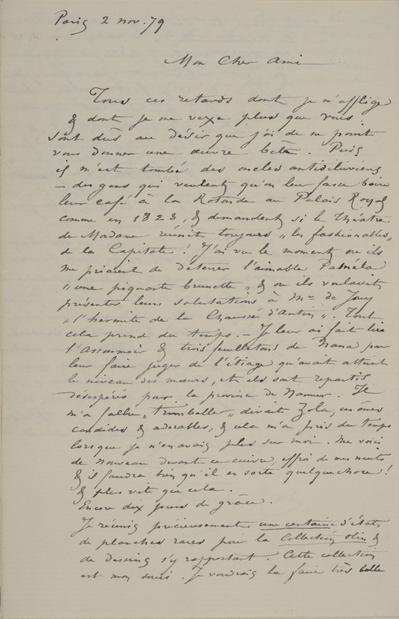 Paris 2 nov. 79
Mon Cher Ami
Tous ces retards dont je m'afflige
& dont je me vexe plus que vous
sont dûs au désir que j'ai de ne point
vous donner une œuvre bête. Puis
il m'est tombé des oncles antidiluviens
– des gens qui veulent qu'on leur fasse boire
leur café à la Rotonde au Palais Royal
comme en 1823, & demandent si le Théâtre
de Madame réunit toujours « les fashionables »
de la Capitale ! J'ai vu le moment où ils
me priaient de déterrer l'aimable Paméla
« une piquante brunette » & où ils voulaient
présenter leurs salutations à Mr de Jouy
« l'hermite de la Chaussée d'Antin ». Tout
cela prend du temps. – Je leur ai fait lire
l'Assommoir & trois feuilletons de Nana pour
leur faire juger de l'étiage qu'avait atteint
le niveau des mœurs, & ils sont repartis
désespérés pour la province de Namur. Il
m'a fallu « trimballer » disait Zola, ces âmes
candides & adorables, & cela m'a pris du temps
lorsque je n'en avais plus sur moi. Me voici
de nouveau devant un cuivre, effroi de mes nuits
& il faudra bien qu'il en sorte quelque chose !
& plus vite que cela.
Encore dix jours de grâce.
Je réunis précieusement une certaine d'états
de planches rares pour la Collection &
de dessins s'y rapportant. Cette collection
est mon souci. Je voudrais la faire très belle